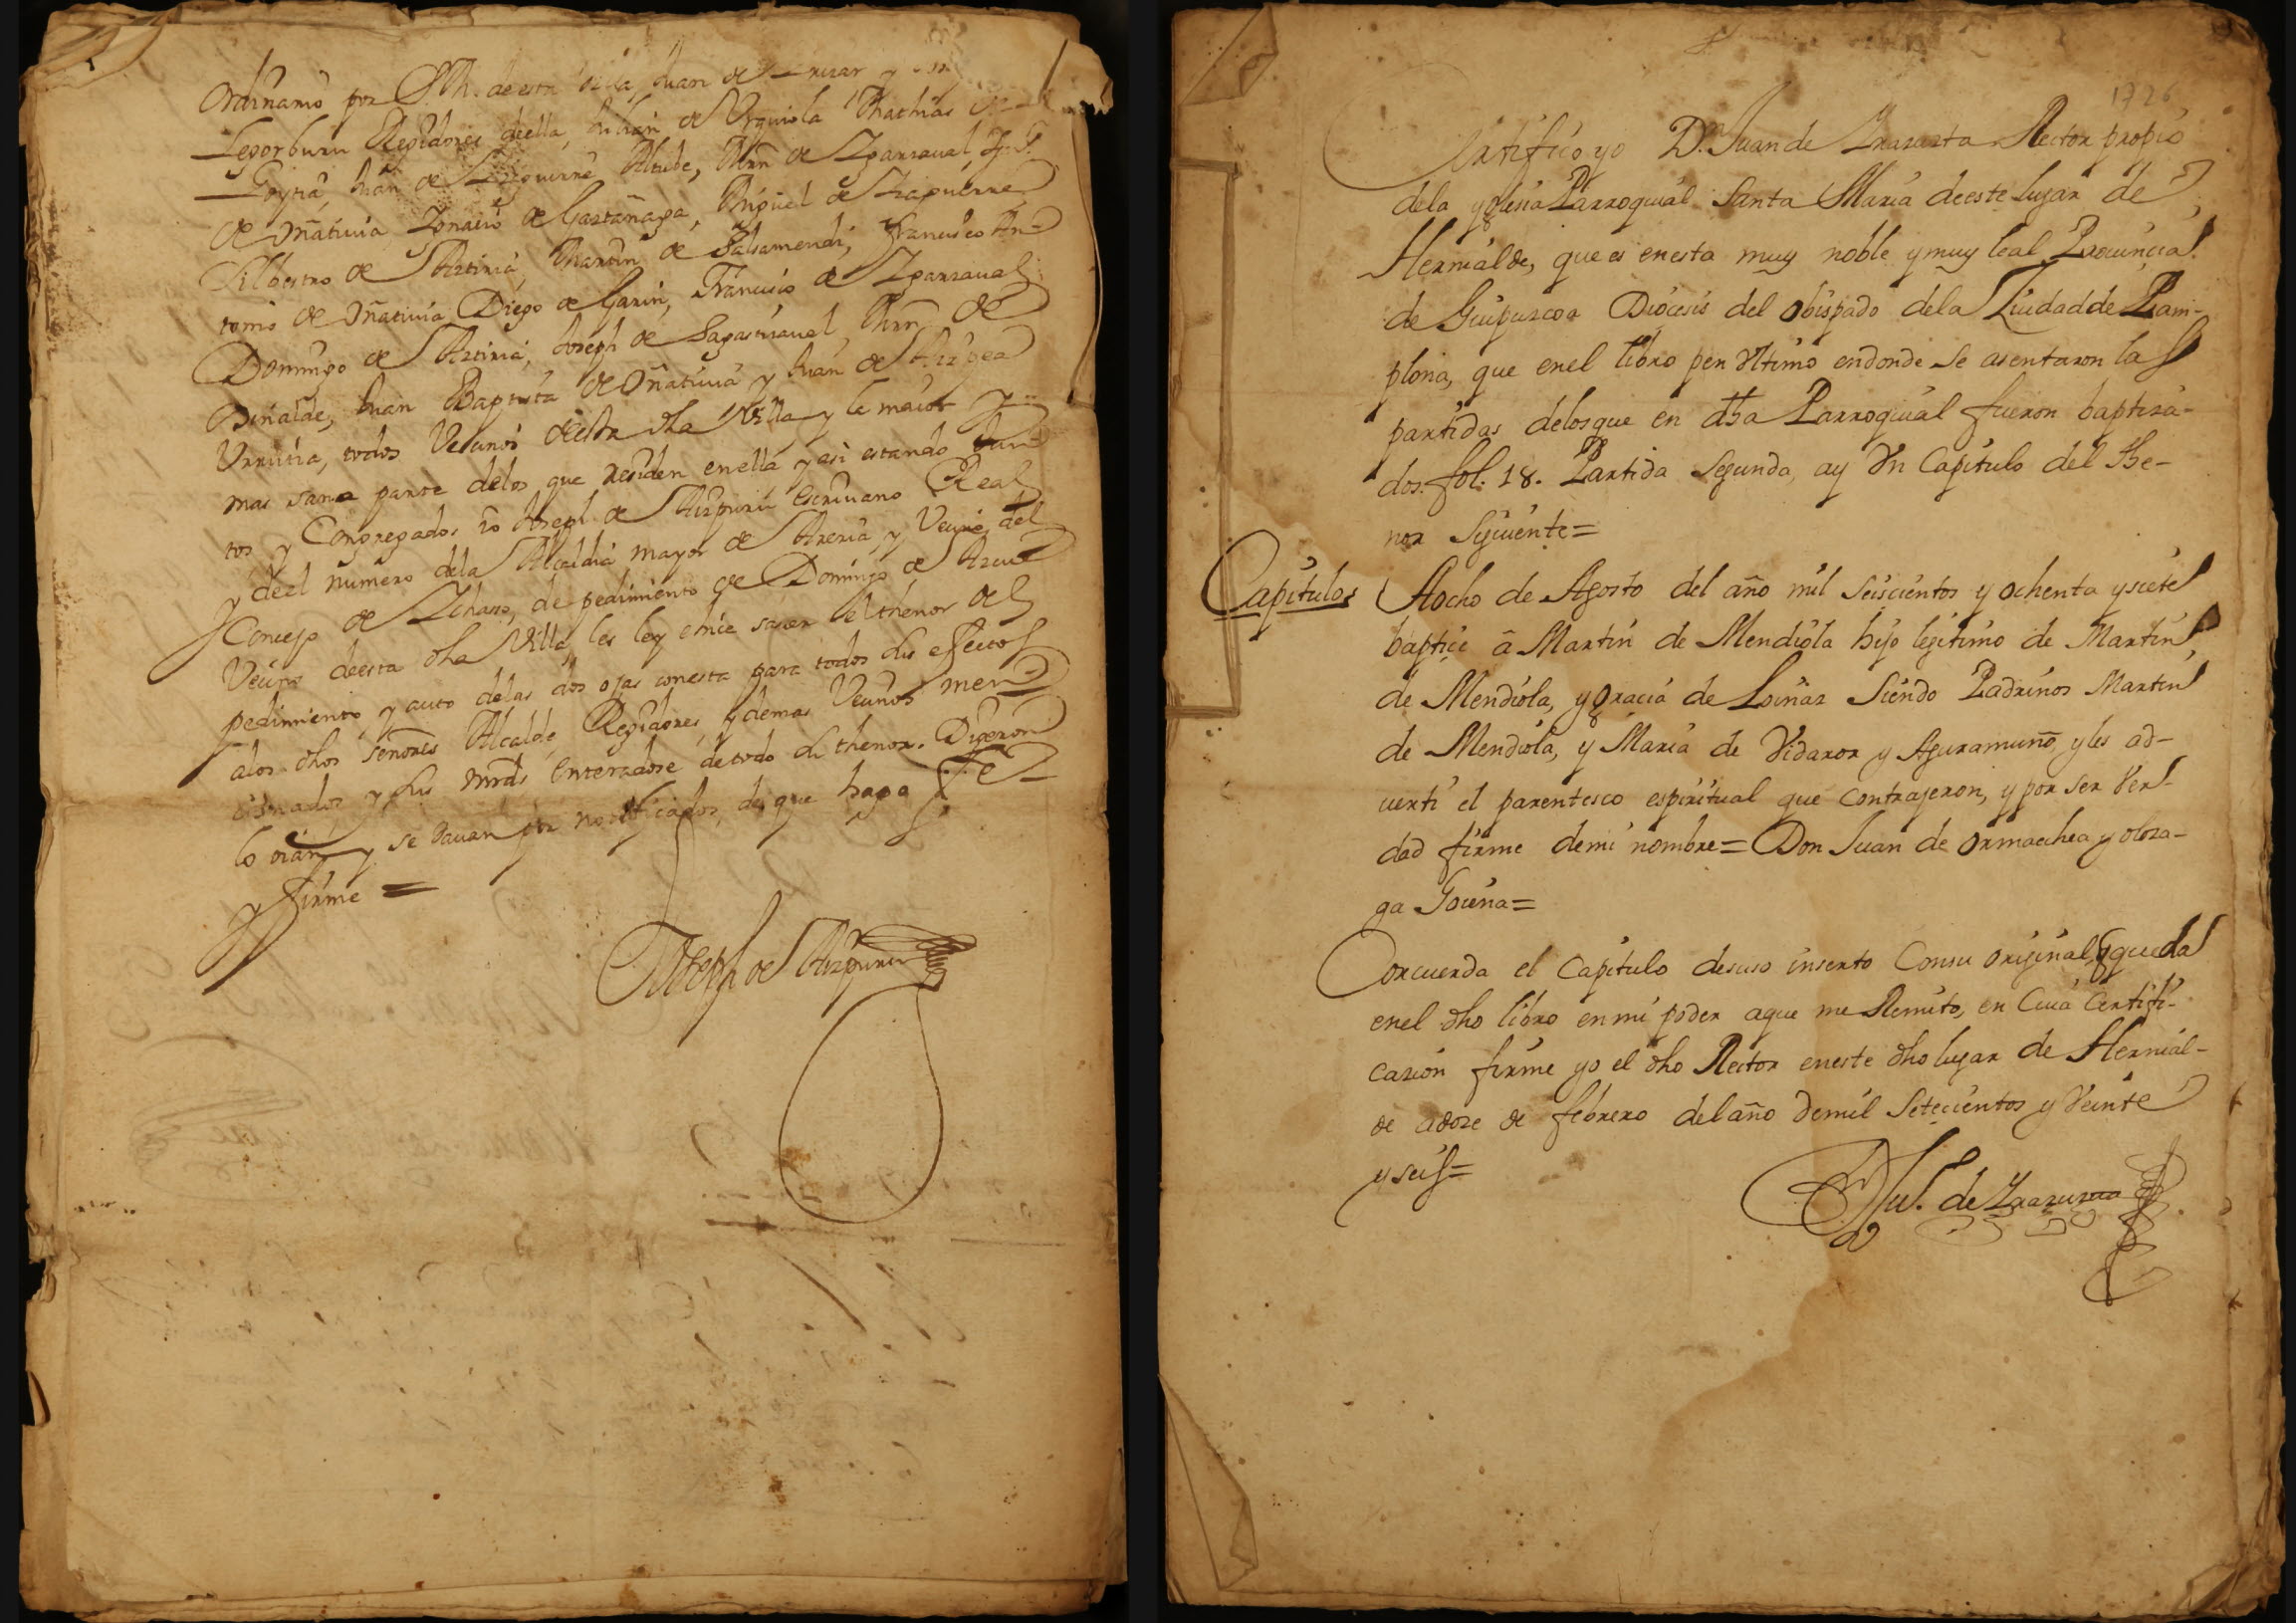 Ordinario por S.M. de esta Villa, Juan de y
Legorburu Regidores deella, Julian de Urquiola Mathias
Juan de Altube, Mrn de Yparraual,
de oñatiuia Ygnacio de Gastañaga, Miguel de
Silbestro de Astiria, Martin de Salsamendi, Francisco An-
tonio de oñatiuia Diego de Garin, Francisco de Yparraual
Domingo de Astiria, Joseph de Sagastiraual, Mrn de
Juan Baptista de oñatiuia y Juan de Aizpea
Urrutia, todos Vecinos desta dha Villa y la maior y
mas sana parte delos que residen enella y asi estando Jun-
tos y Congregados io Joseph de Aizpuru escriuano Real
y deel numero dela Alcaldia mayor de Areria, y Vecino del
Concejo de Ychaso, de pedimiento de Domingo de
Vecino deesta dha Villa, les ley e hice sauer el thenor del
pedimiento y auto delas dos ojas conesta para todos sus efectos
alos dhos señores Alcalde Regidores, y demas Vecinos men-
cionados y sus mrds enterados de todo su thenor. Digeron
lo oian y se dauan por notificados, de que haga Fe
y firme =
Joseph de Aizpuru
1726
Certifico yo Dn. Juan de Yrazusta Rector propio
dela yglesia Parroquial Santa Maria deeste lugar de
Hernialde, que es enesta muy noble y muy leal Prouincia
de Guipuzcoa Diocesis del obispado dela Ziudad de Pam-
plona, que enel libro pen Vltimo endonde se asentaron las
partidas delos que en dha Parroquial fueron baptiza-
dos. fol. 18. Partida segunda, ay Vn Capitulo del the-
nor siguiente=
Capitulo;
Aocho de Agosto del año mil seiscientos y ochenta y siete
baptice â Martin de Mendiola hijo legitimo de Martin
de Mendiola, y gracia de Loinaz siendo Padrinos Martin
de Mendiola, y Maria de Vidaror y Aguramuño, y les ad-
uerti el parentesco espiritual que contrajeron, y por ser Ver-
dad firme demi nombre= Don Juan de ormaechea y oloza-
ga Goiena=
Concuerda el Capitulo desuso inserto Consu original, q queda
enel dho libro enmi poder aque me Remito, en Cuia Certifi-
cacion firme yo el dho Rector eneste dho lugar de Hernial-
de adoze de febrero del año demil setecientos y Veinte
y seis=
Dn Ju. de Yrazusta